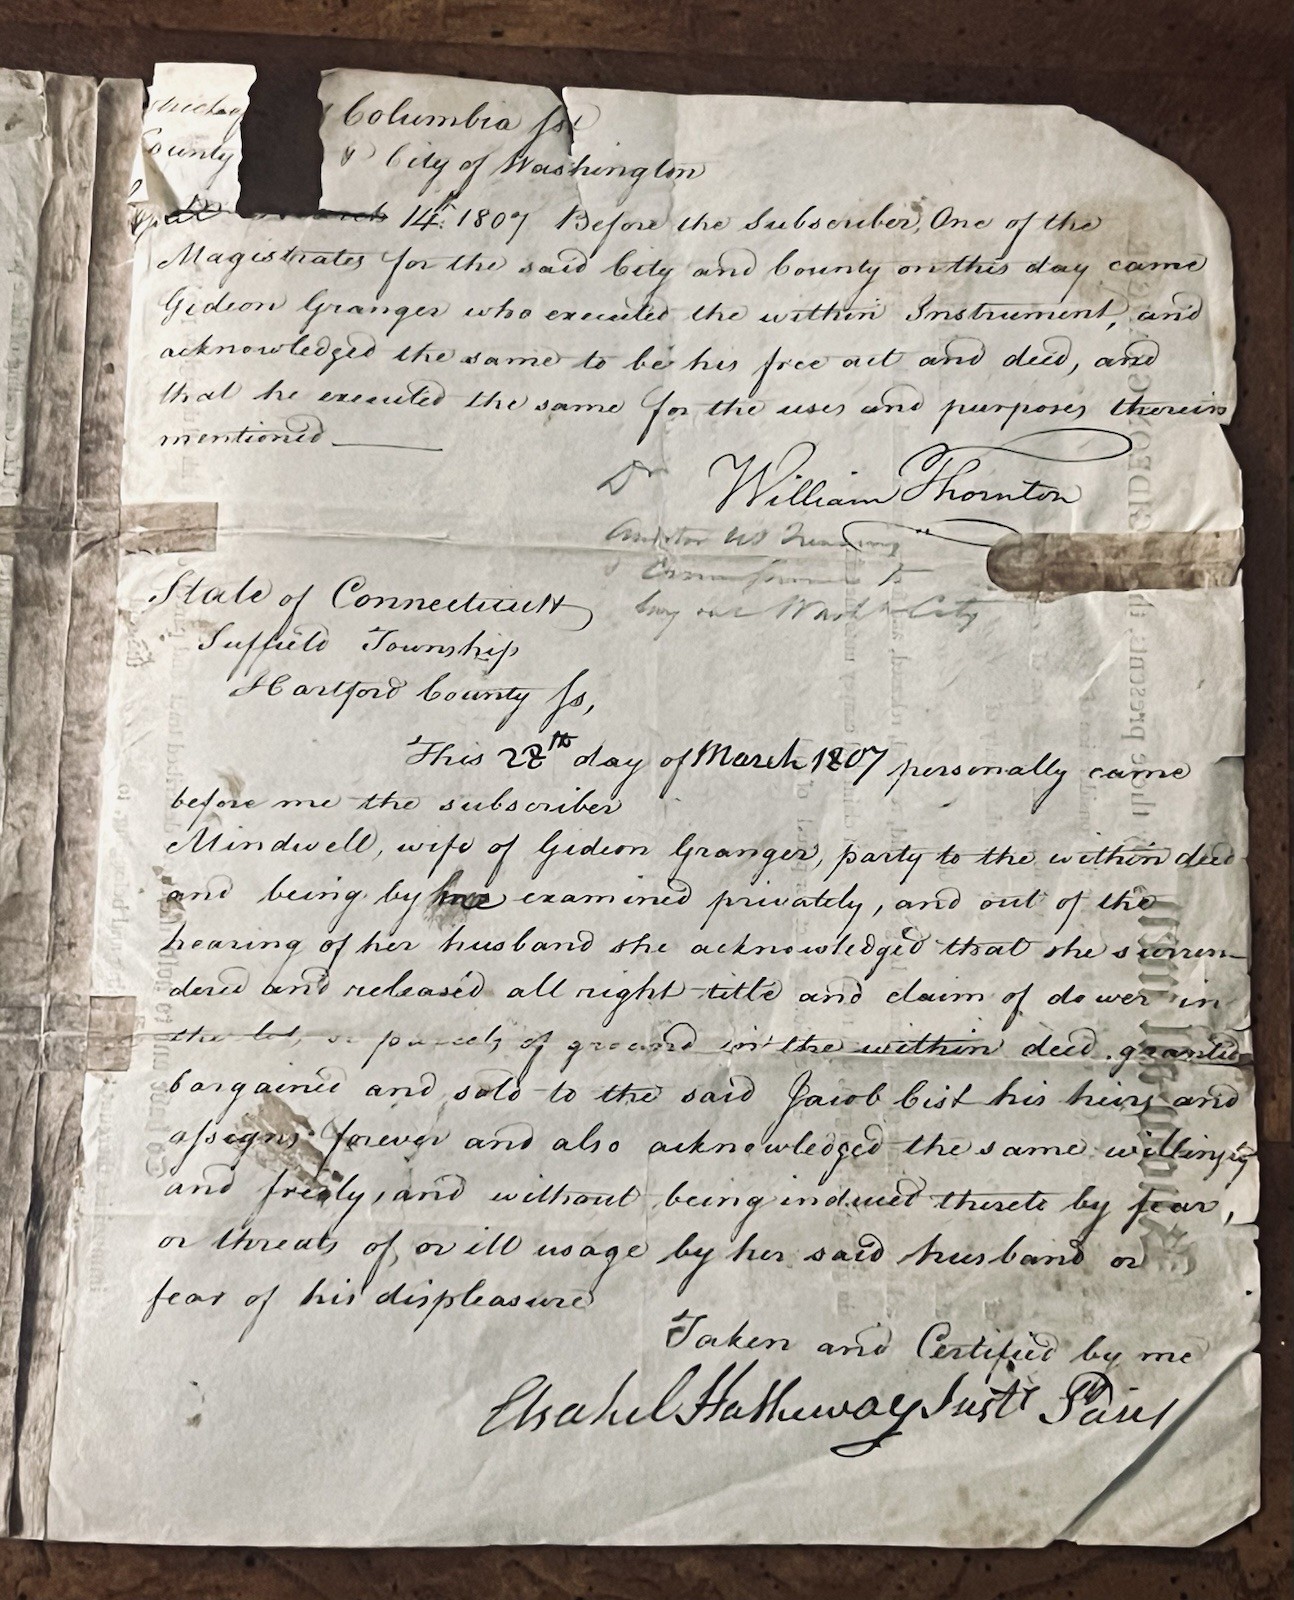 Columbia ss
County & City of Washington
March 14th 1807 Before the Subscriber, One of the
Magistrates for the said City and County on this day came
Gideon Granger who executed the within Instrument, and
acknowledged the same to be his free act and deed, and
that he executed the same for the uses and purposes therein
mentioned
Dr William Thornton
State of Connecticutt
Suffield Township
Hartford County ss,
This 28th day of March 1807 personally came
before me the subscriber
Mindwell, wife of Gideon Granger, party to the within deed
and being by me examined privately, and out of the
hearing of her husband she acknowledged that she surren-
dered and released all right title and claim of dower in
the lot, or parcels of ground in the within deed granted
bargained and sold to the said Jacob Cist his heirs and
assigns forever and also acknowledged the same willingly
and freely, and without being induced thereto by fear,
or threats of, or ill usage by her said husband or
fear of his displeasure
Taken and Certified by me
Hatheway Just Pacis